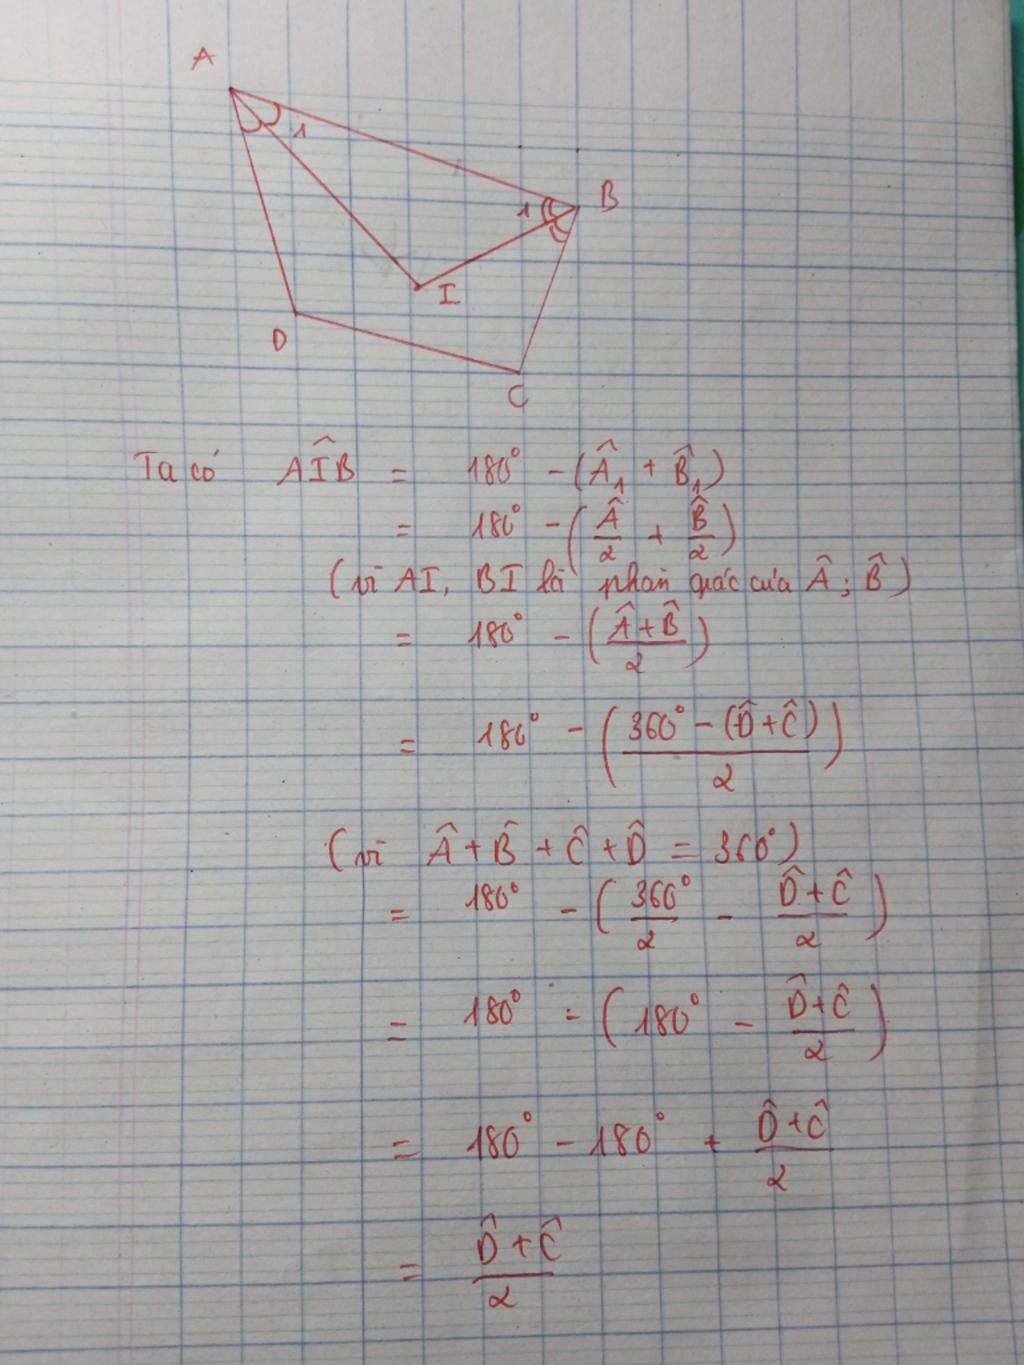 A
1
1 B
I
D
C
Ta có AÎB = 180° - (Â₁ + B̂₁)
= 180° - (Â/2 + B̂/2)
(vì AI, BI là phân giác của Â; B̂)
= 180° - ((Â + B̂)/2)
= 180° - ((360° - (D̂ + Ĉ))/2)
(vì Â + B̂ + Ĉ + D̂ = 360°)
= 180° - (360°/2 - (D̂ + Ĉ)/2)
= 180° - (180° - (D̂ + Ĉ)/2)
= 180° - 180° + (D̂ + Ĉ)/2
= (D̂ + Ĉ)/2